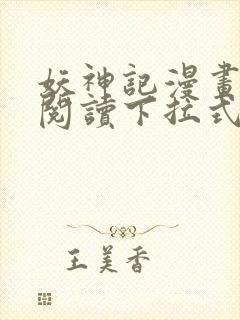 妖神記漫畫
閱讀下拉式
王美香